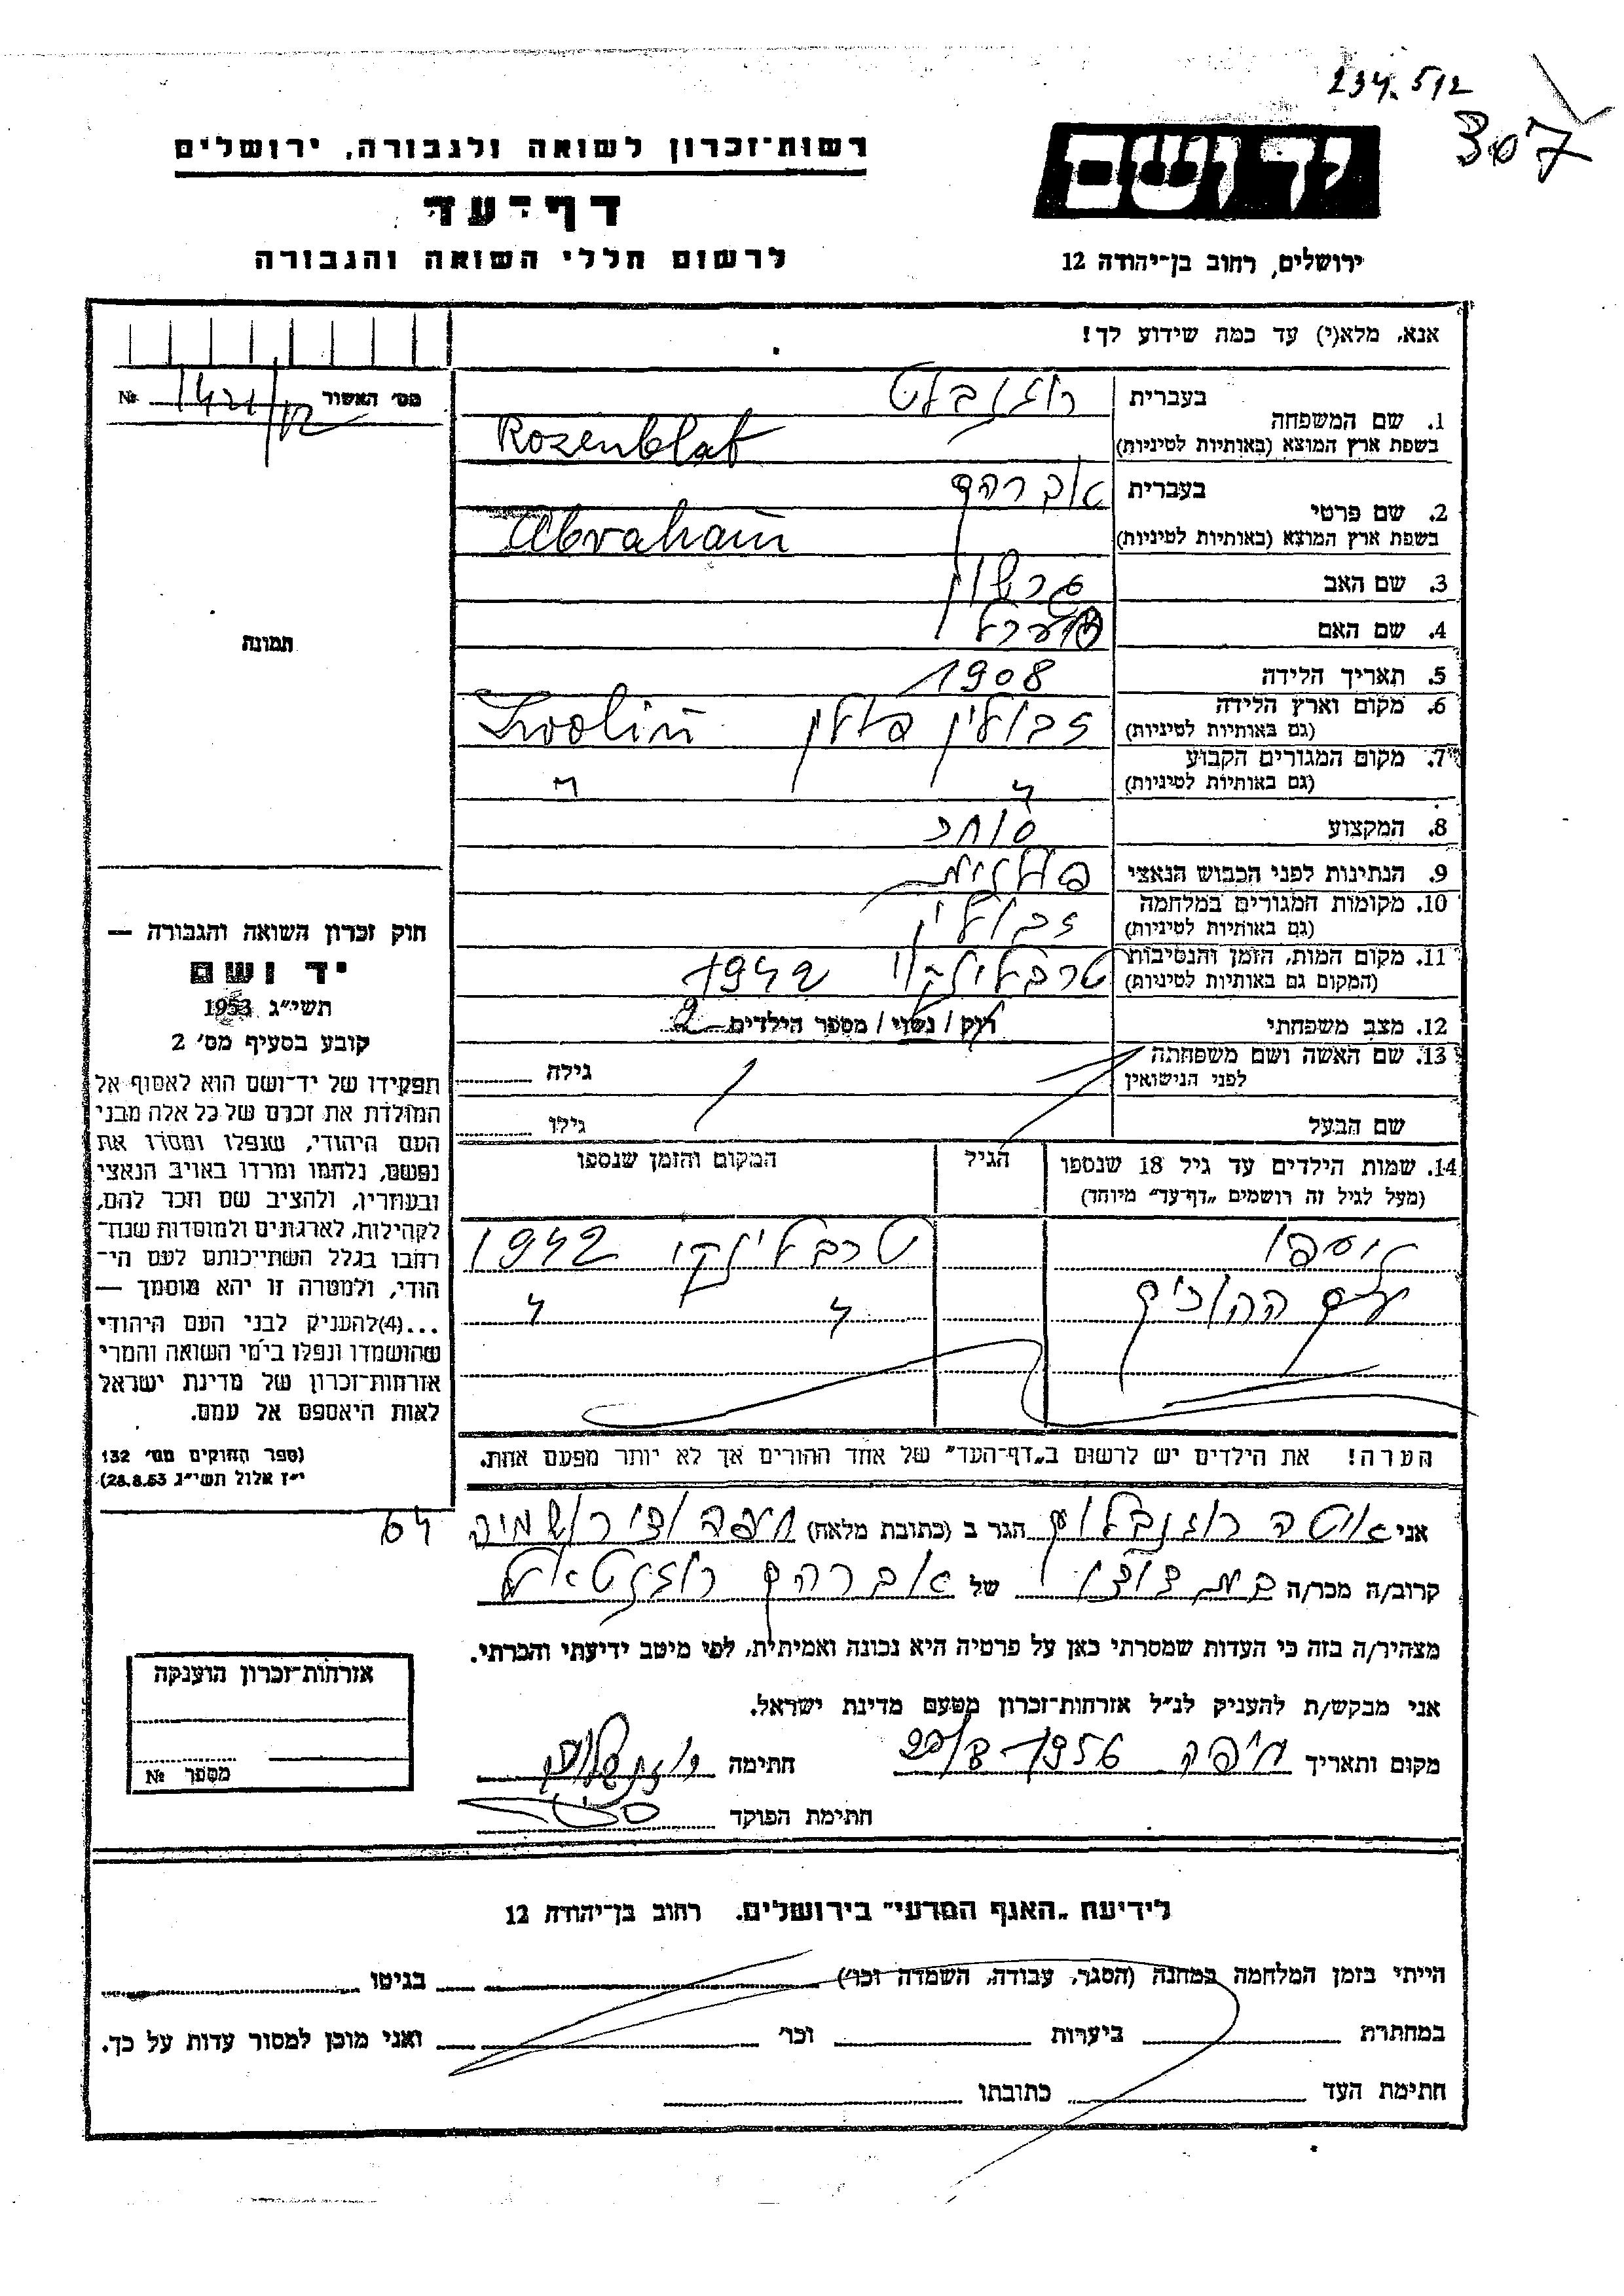 234.512
307
יד ושם
ירושלים, רחוב בן־יהודה 12
רשות־זכרון לשואה ולגבורה, ירושלים
דף־עד
לרשום חללי השואה והגבורה
אנא, מלא(י) עד כמה שידוע לך!
מס׳ האשור №
1. שם המשפחה
בעברית רוזנבלט
בשפת ארץ המוצא (באותיות לטיניות) Rozenblat
2. שם פרטי
בעברית אברהם
בשפת ארץ המוצא (באותיות לטיניות) Abraham
3. שם האב גרשון
4. שם האם
5. תאריך הלידה 1908
6. מקום וארץ הלידה
(גם באותיות לטיניות) זבולין פולין Zwolin
7. מקום המגורים הקבוע
(גם באותיות לטיניות) " "
8. המקצוע סוחר
9. הנתינות לפני הכבוש הנאצי פולנית
10. מקומות המגורים במלחמה
(גם באותיות לטיניות) זבולין
11. מקום המות, הזמן והנסיבות
(המקום גם באותיות לטיניות) טרבלינקי 1942
12. מצב משפחתי רוק / נשוי / מספר הילדים 2
13. שם האשה ושם משפחתה
לפני הנישואין
גילה
שם הבעל
גילו
14. שמות הילדים עד גיל 18 שנספו
(מעל לגיל זה רושמים „דף־עד״ מיוחד)
הגיל
המקום והזמן שנספו
טרבלינקי 1942
" "
הערה! את הילדים יש לרשום ב„דף־העד״ של אחד ההורים אך לא יותר מפעם אחת.
תמונה
חוק זכרון השואה והגבורה —
יד ושם
תשי״ג 1953
קובע בסעיף מס׳ 2
תפקידו של יד־ושם הוא לאסוף אל
המולדת את זכרם של כל אלה מבני
העם היהודי, שנפלו ומסרו את
נפשם, נלחמו ומרדו באויב הנאצי
ובעוזריו, ולהציב שם וזכר להם,
לקהילות, לארגונים ולמוסדות שנח־
רבו בגלל השתייכותם לעם הי־
הודי, ולמטרה זו יהא מוסמך —
...(4)להעניק לבני העם היהודי
שהושמדו ונפלו בימי השואה והמרי
אזרחות־זכרון של מדינת ישראל
לאות היאספם אל עמם.
(ספר החוקים מס׳ 132
י״ז אלול תשי״ג 28.8.53)
אני רוזנבלום הגר ב (כתובת מלאה) חיפה ואדי רושמיה 64
קרוב/ה מכר/ה בת דודו של אברהם רוזנבלאט
מצהיר/ה בזה כי העדות שמסרתי כאן על פרטיה היא נכונה ואמיתית, לפי מיטב ידיעתי והכרתי.
אני מבקש/ת להעניק לנ״ל אזרחות־זכרון מטעם מדינת ישראל.
מקום ותאריך חיפה 1956 חתימה
חתימת הפוקד
אזרחות־זכרון הוענקה
מספר №
לידיעת „האגף המדעי״ בירושלים. רחוב בן־יהודה 12
הייתי בזמן המלחמה במחנה (הסגר, עבודה, השמדה וכו׳) בגיטו
במחתרת ביערות וכו׳ ואני מוכן למסור עדות על כך.
חתימת העד כתובתו